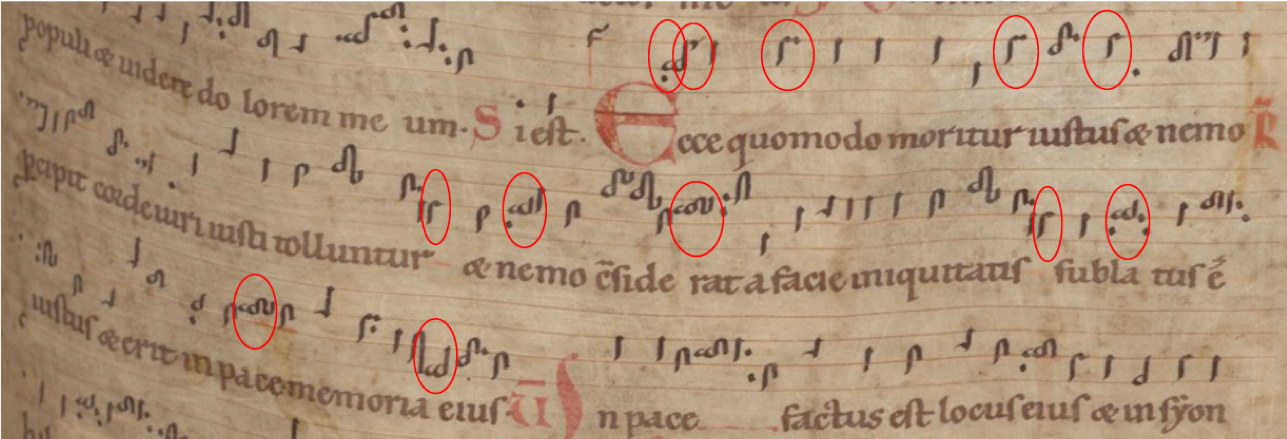 populi & uidere do lorem me um. S i est. Ecce quomodo moritur iustus & nemo R̃
percipit corde uiri iusti tolluntur & nemo c̃side rat a facie iniquitatis subla tus ẽ
iustus & erit in pace memoria eius Ũ In pace factus est locus eius & in syon